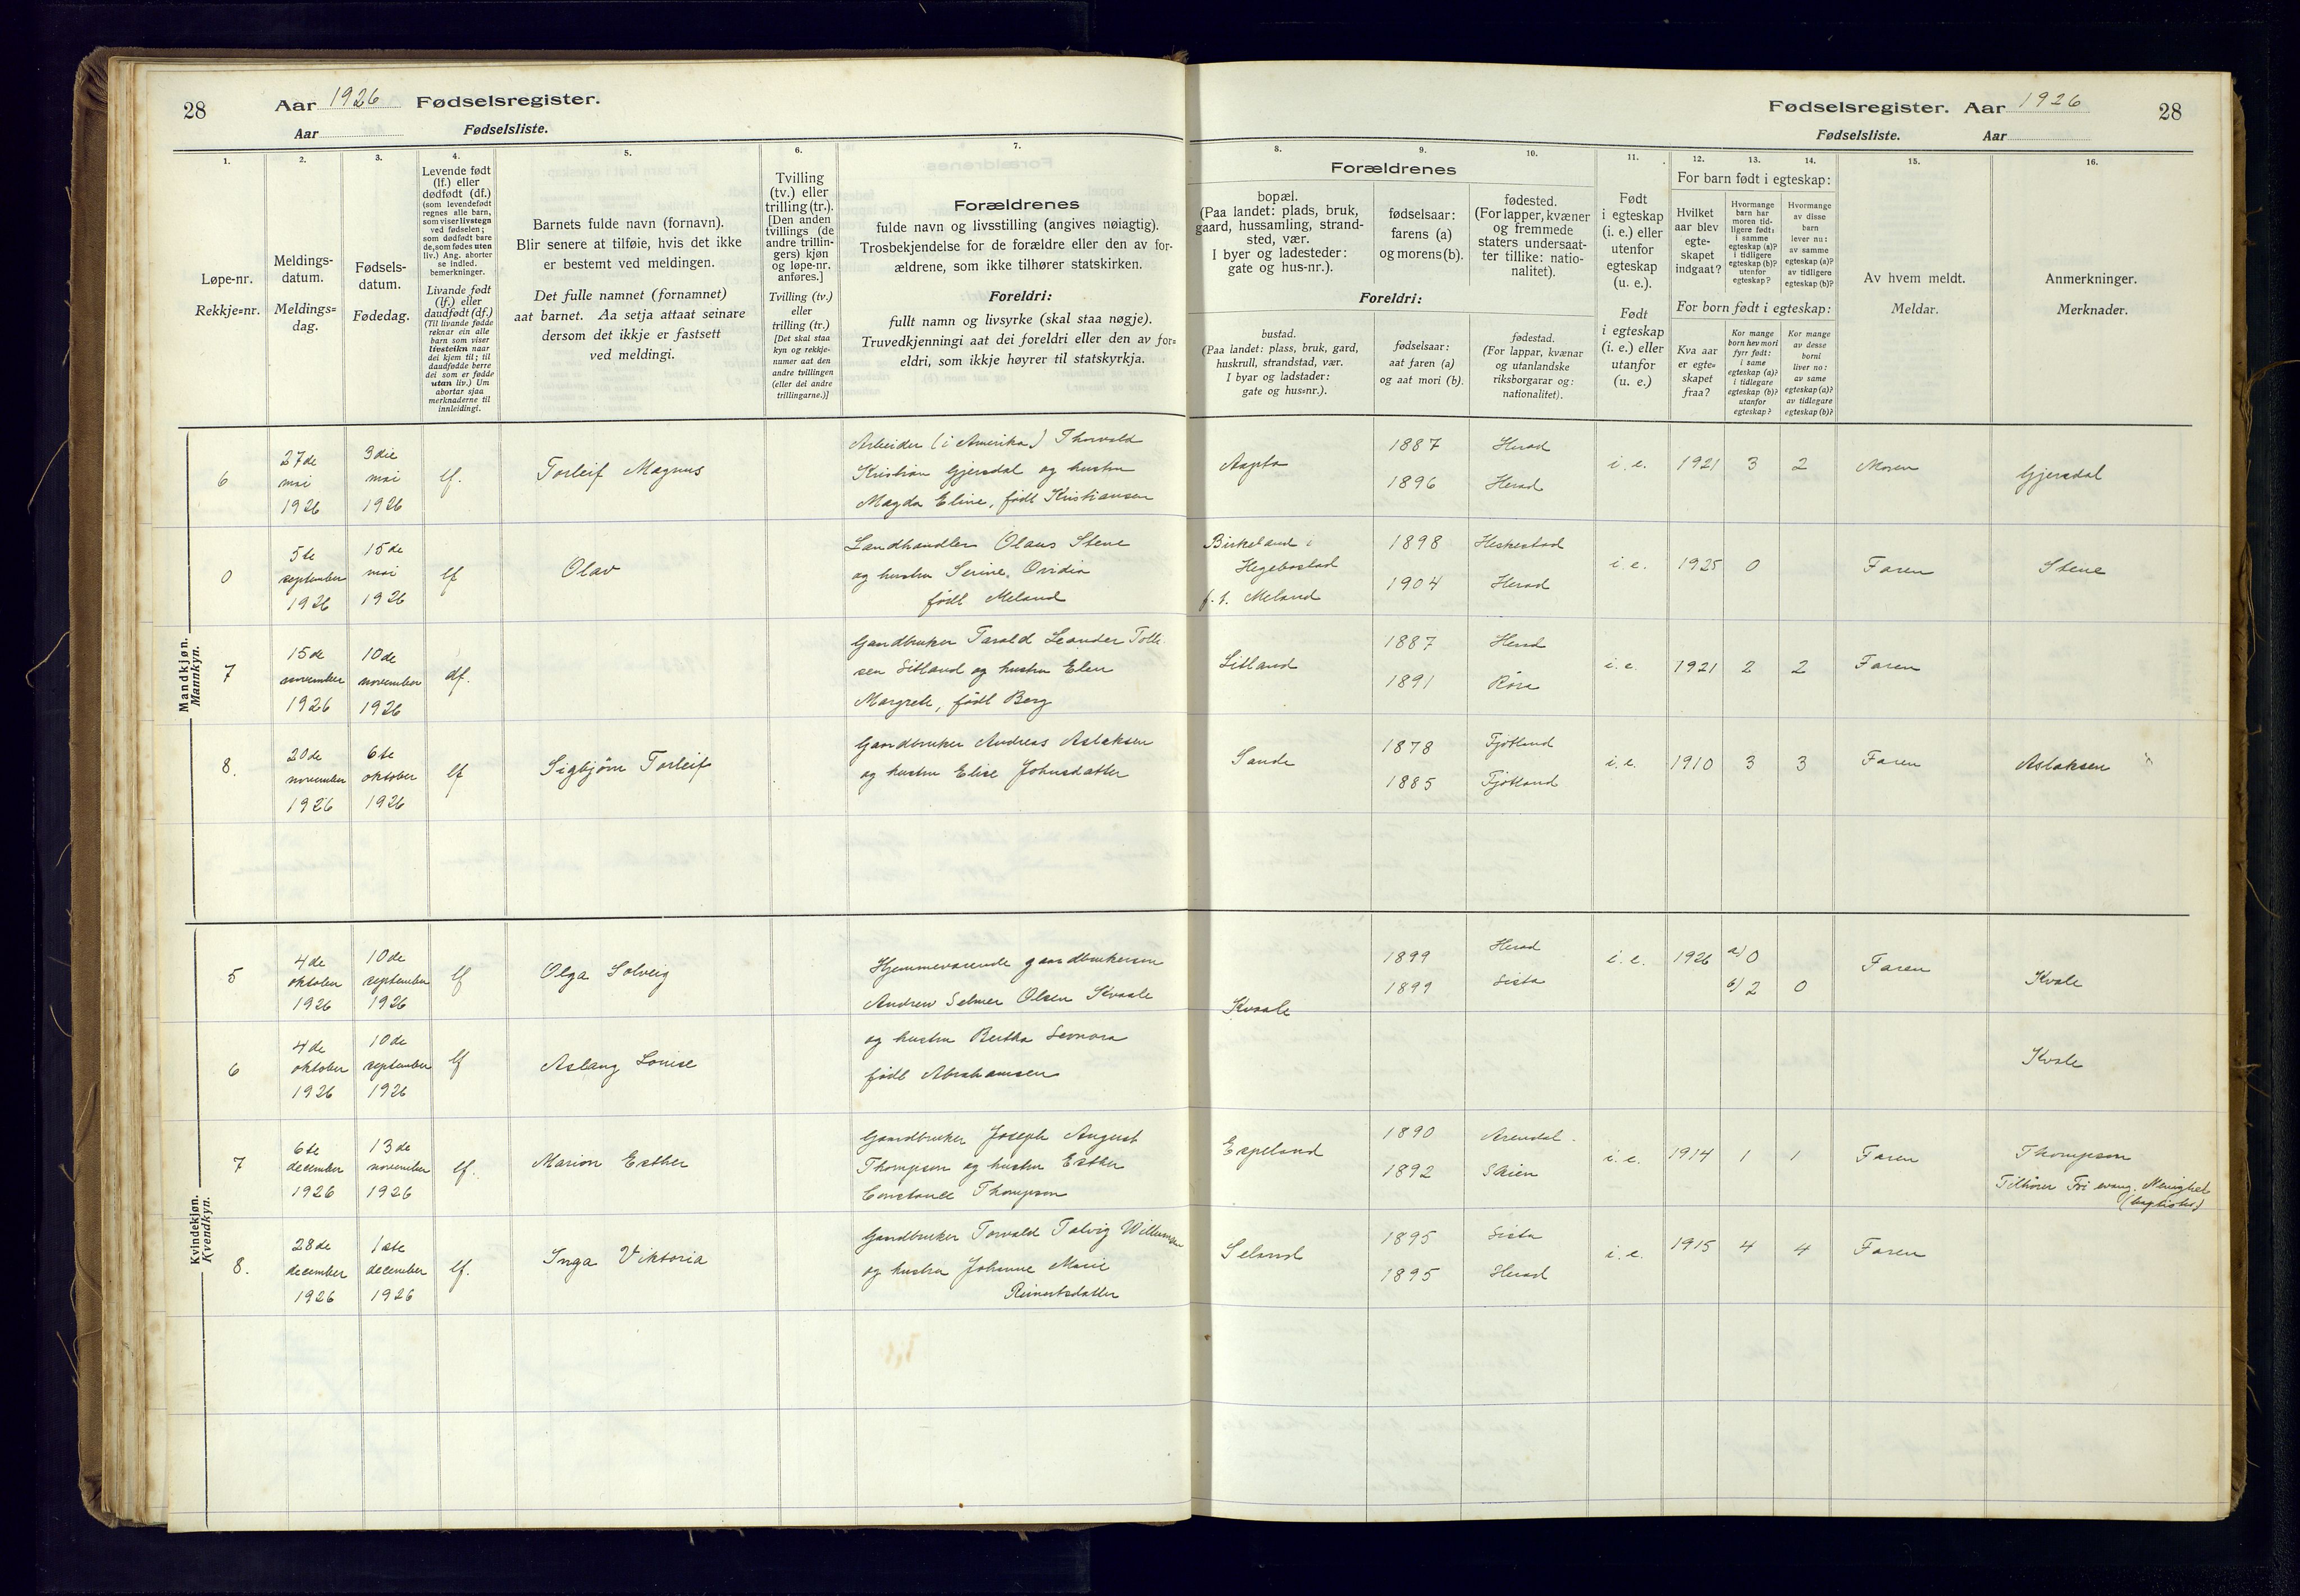 28 Aar 1926 Fødselsregister.
Aar Fødselsliste.
Fødselsregister. Aar 1926 28
Fødselsliste. Aar
1.
Løpe-nr.
Rekkje=nr.
2.
Meldings-
datum.
Meldings=
dag.
3.
Fødsels-
datum.
Fødedag.
4.
Levende født
(lf.) eller
dødfødt (df.)
(som levendefødt
regnes alle barn,
som viser livstegn
ved fødselen;
som dødfødt bare
de, som fødes uten
liv.) Ang. aborter
se indled.
bemerkninger.
Livande født
(lf.) eller
daudfødt (df.)
(Til livande fødde
reknar ein alle
barn som viser
livsteikn naar
dei kjem til; til
daudfødde berre
dei som er fødde
utan liv.) Um
abortar sjaa
merknaderne til
innleidingi.
5.
Barnets fulde navn (fornavn).
Blir senere at tilføie, hvis det ikke
er bestemt ved meldingen.
Det fulle namnet (fornamnet)
aat barnet. Aa setja attaat seinare
dersom det ikkje er fastsett
ved meldingi.
6.
Tvilling
(tv.) eller
trilling (tr.).
[Den anden
tvillings (de
andre trillin-
gers) kjøn
og løpe-nr.
anføres.]
Tvilling (tv.)
eller
trilling (tr.)
[Det skal staa
kyn og rekkje-
numer aat den
andre tvillingen
(eller dei andre
trillingarne.)]
7.
Forældrenes
fulde navn og livsstilling (angives nøiagtig).
Trosbekjendelse for de forældre eller den av for-
ældrene, som ikke tilhører statskirken.
Foreldri:
fullt namn og livsyrke (skal staa nøgje).
Truvedkjenningi aat dei foreldri eller den av for=
eldri, som ikkje høyrer til statskyrkja.
Forældrenes
8.
bopæl.
(Paa landet: plads, bruk,
gaard, hussamling, strand-
sted, vær.
I byer og ladesteder:
gate og hus-nr.).
9.
fødselsaar:
farens (a)
og morens (b).
10.
fødested.
(For lapper, kvæner
og fremmede
staters undersaat-
ter tillike: natio-
nalitet).
Foreldri:
bustad.
(Paa landet: plass, bruk, gard,
huskrull, strandstad, vær.
I byar og ladstader:
gate og hus=nr.).
fødselsaar:
aat faren (a)
og aat mori (b).
fødestad.
(For lappar, kvænar
og utanlandske
riksborgarar og:
nationalitet).
11.
Født
i egteskap
(i. e.) eller
utenfor
egteskap
(u. e.).
Født
i egteskap
(i. e.) eller
utanfor
(u. e.)
12. 13. 14.
For barn født i egteskap:
Hvilket
aar blev
egte-
skapet
indgaat?
Hvormange
barn har
moren tid-
ligere født:
i samme
egteskap (a)?
i tidligere
egteskap (b)?
utenfor
egteskap?
Hvormange
av disse
barn
lever nu:
av samme
egteskap (a)?
av tidligere
egteskap (b)?
For born født i egteskap:
Kva aar
er egte=
skapet
fraa?
Kor mange
born hev mori
fyrr født:
i same
egteskap (a)?
i tidlegare
egteskap (b)?
utanfor
egteskap?
Kor mange
av desse
borni
liver no:
av same
egteskap (a)?
av tidlegare
egteskap (b)?
15.
Av hvem meldt.
Meldar.
16.
Anmerkninger.
Merknader.
Mandkjøn.
Mannkyn.
6
27de
mai
1926
3die
mai
1926
lf.
Torleif Magnus
Arbeider (i Amerika) Thorvald
Kristian Gjersdal og hustru
Magda Eline, født Kristiansen
Aapta
1887 Herad
1896 Herad
i. e. 1921 3 2 Moren Gjersdal
0
5te
september
1926
15de
mai
1926
lf
Olav
Landhandler Olaus Stene
og hustru Serine Ovidia
født Meland
Birkeland i
Hegebostad
f. t. Meland
1898 Heskestad
1904 Herad
i. e. 1925 0 Faren Stene
7
15de
november
1926
10de
november
1926
df.
Gardbruker Tarald Leander Tolli
sen Litland og hustru Elen
Margrete, født Berg
Litland
1887 Herad
1891
i. e. 1921 2 2 Faren
8.
20de
november
1926
6te
oktober
1926
lf
Sigbjørn Torleif
Gardbruker Andreas Aslaksen
og hustru Elise Johnsdatter
Sande
1878 Fjotland
1885 Fjotland
i. e. 1910 3 3 Faren Aslaksen
Kvindekjøn.
Kvendkyn.
5
4de
oktober
1926
10de
september
1926
lf
Olga Solveig
Hjemmeværende gaardbrukersøn
Andrew Selmer Olsen Kvaale
Kvaale
1899 Herad
1899 Lista
i. e. 1926 a) 0
b) 2 0
Faren Kvale
6
4de
oktober
1926
10de
september
1926
lf
Aslaug Louise
og hustru Bertha Leonora
født Abrahamsen
Kvale
7
6te
december
1926
13de
november
1926
lf.
Marion Esther
Gaardbruker Joseph August
Thompson og hustru Esther
Constance Thompson
Espeland
1890 Arendal.
1892 Skien
i. e. 1914 1 1 Faren Thompson
Tilhører Fri evang. Menighet
(baptister)
8.
28de
december
1926
1ste
december
1926
lf.
Inga Viktoria
Gardbruker Torvald Tolvig Willumsen
og hustru Johanne Marie
Reinertsdatter
Seland
1895 Lista
1895 Herad
i. e. 1915 4 4 Faren